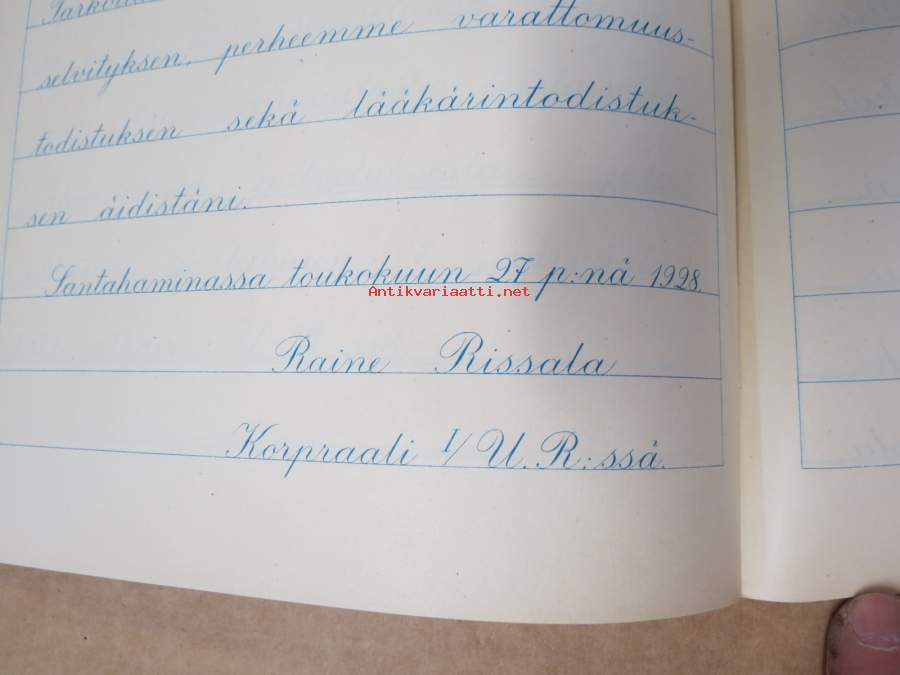 selvityksen, perheemme varattomuus-
todistuksen sekä lääkärintodistuk-
sen äidistäni.
Santahaminassa toukokuun 27 p:nä 1928.
Antikvariaatti.net
Raine Rissala
Korpraali I/U.R:ssä.